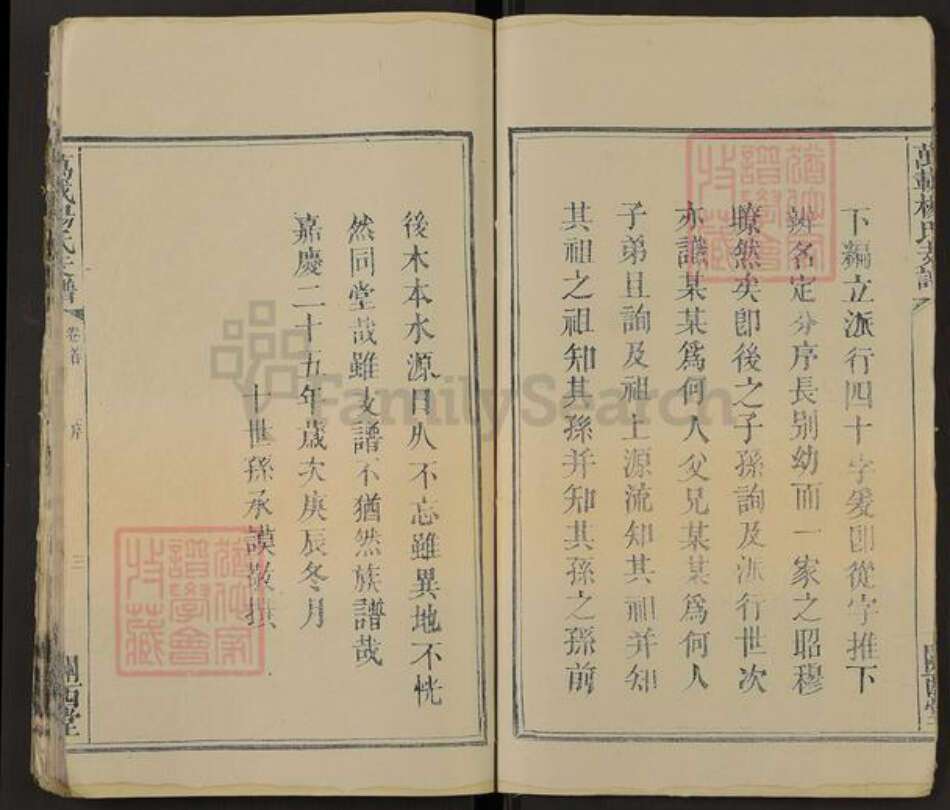 萬載楊氏支譜
下編立派行四十字爰即從字推下
辨名定分序長別幼而一家之昭穆
瞭然矣卽後之子孫詢及派行世次
亦譏某某爲何人父兄某某爲何人
子弟且詢及祖上源流知其祖并知
其祖之祖知其孫并知其孫之孫前
後木本水源日久不忘雖異地不恍
然同堂哉雖支譜不猶然族譜哉
嘉慶二十五年歲次庚辰冬月
十世孫承謨敬撰
萬載楊氏支譜
卷首
序
三
關西堂
關西堂
FamilySearch
譜學會
收藏
譜學會
收藏